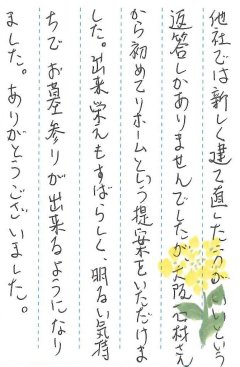 他社では新しく建て直した方がいいという
返答しかありませんでしたが大阪石材さん
から初めてリホームという提案をいただけま
した。出来栄えもすばらしく、明るい気持
ちでお墓参りが出来るようになり
ました。ありがとうございました。